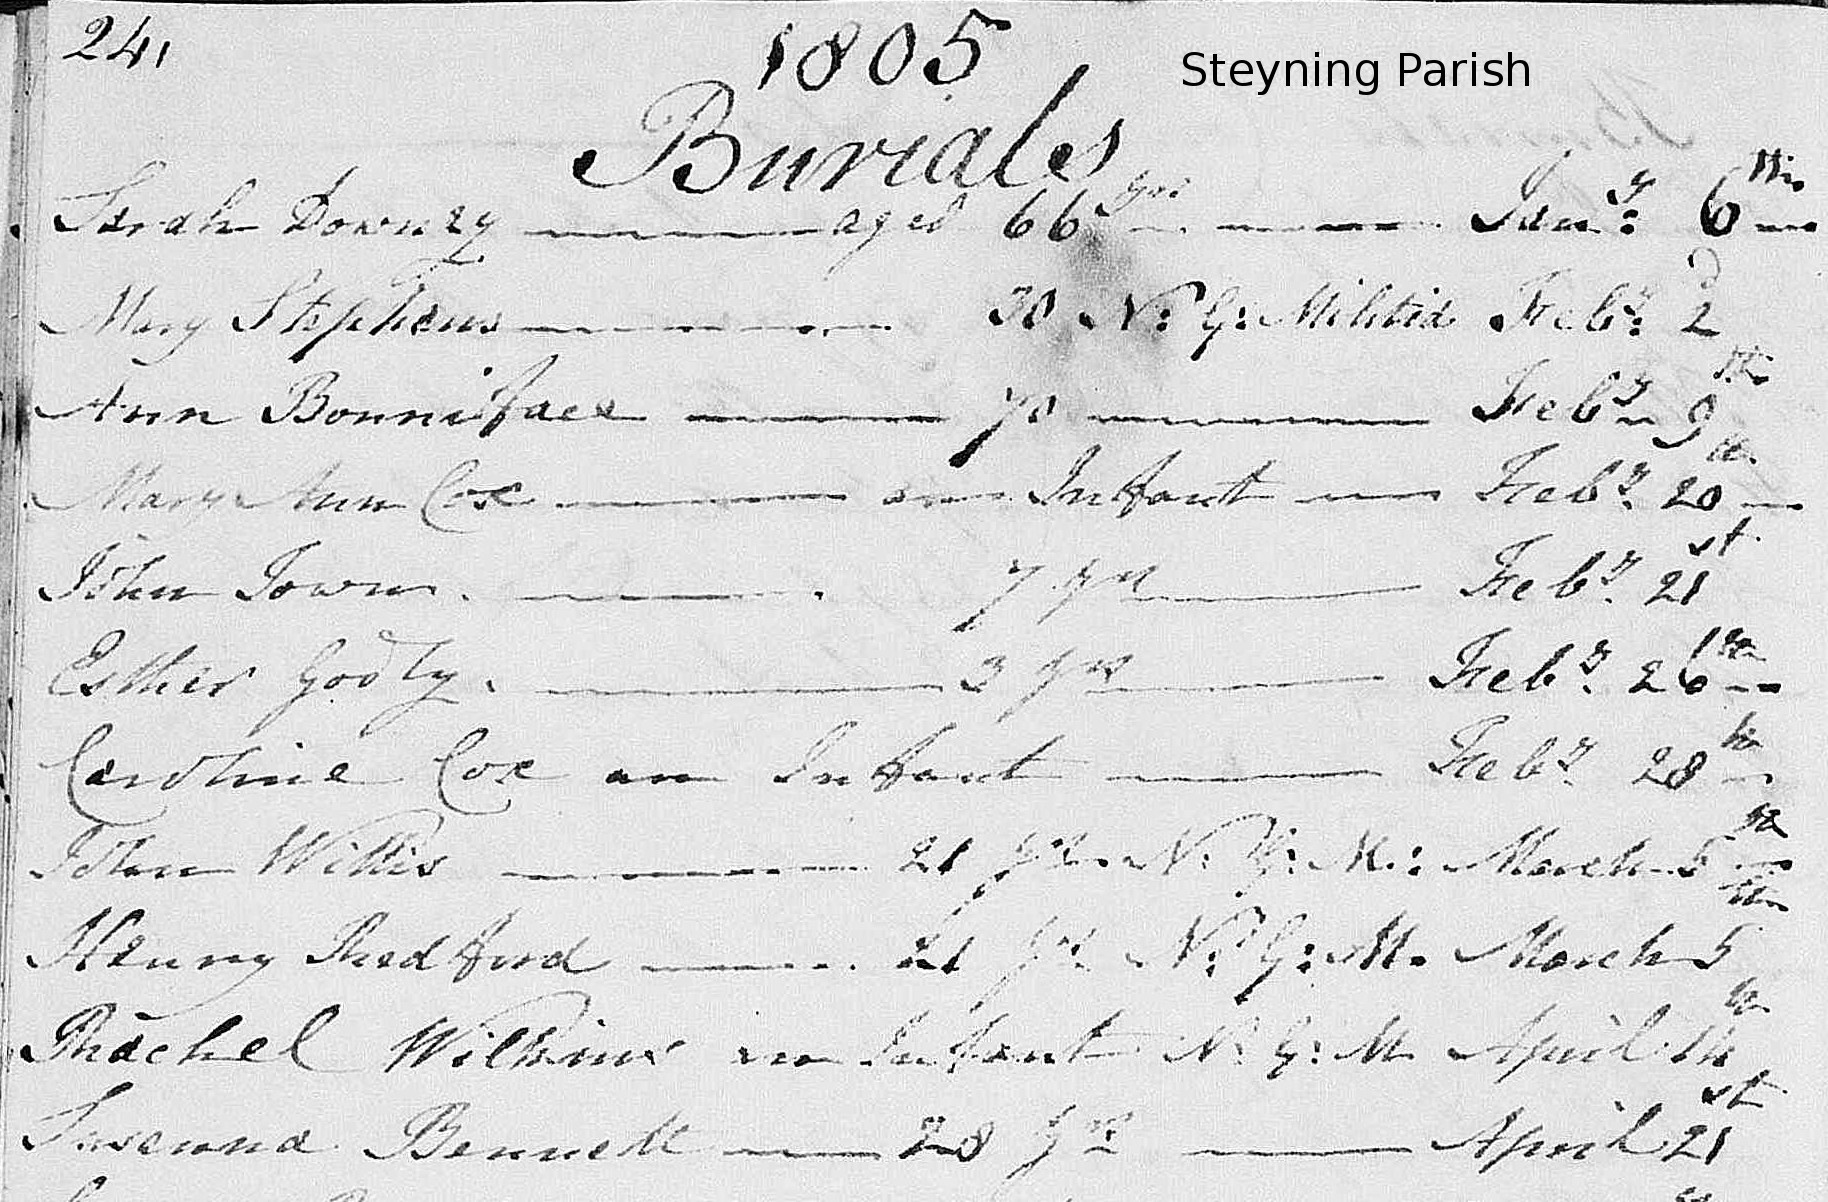 24,
1805
Steyning Parish
Burials
Sarah Downey aged 66 yrs Jany: 6th
Mary Stephens 30 N: G: Militia Feby: 2d
Ann Bonniface 70 Feby 9th
Mary Ann Cox an Infant Feby. 20th
John Town. 7 yrs Feby. 21st
Esther Godly. 3 yrs Feby. 26th
Caroline Cox an Infant Feby. 28th
John Willis 21 yrs N: G: M: March 5th
Henry Redford 21 yrs N: G: M. March 5th
Rachel Wilkins an Infant N: G: M April 14th
Susanna Bennett 28 yrs April 21st